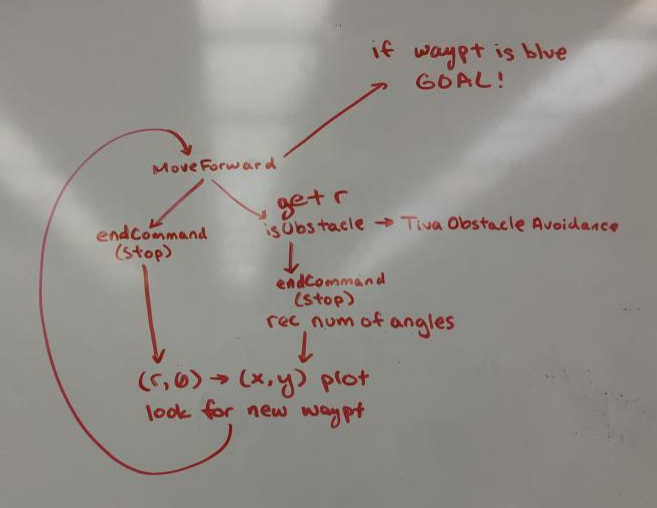 if waypt is blue
GOAL!
MoveForward
get r
endCommand
(stop)
isObstacle → Tiva Obstacle Avoidance
endCommand
(stop)
rec num of angles
(r, θ) → (x,y) plot
look for new waypt